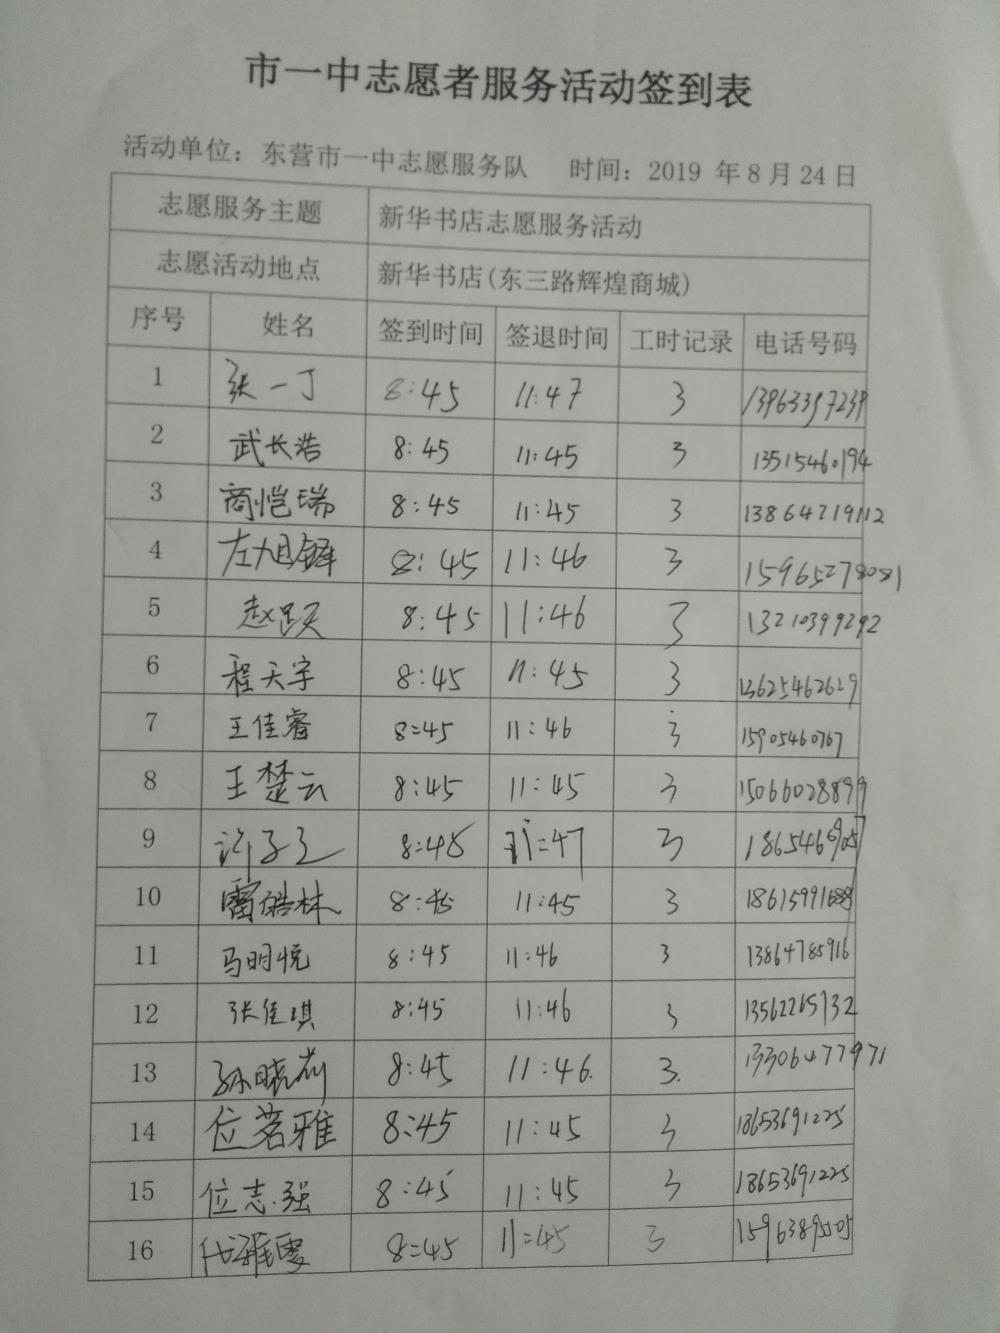 市一中志愿者服务活动签到表
活动单位：东营市一中志愿服务队 时间：2019 年 8 月 24 日
志愿服务主题 新华书店志愿服务活动
志愿活动地点 新华书店(东三路辉煌商城)
序号 姓名 签到时间 签退时间 工时记录 电话号码
1 张一丁 8:45 11:47 3 13963397239
2 武长浩 8:45 11:45 3 13515460194
3 商恺瑞 8:45 11:45 3 13864219112
4 左旭铎 8:45 11:46 3 15965278081
5 8:45 11:46 3 13210399292
6 程天宇 8:45 11:45 3 13625462629
7 王佳睿 8:45 11:46 3 15905460767
8 王楚云 8:45 11:45 3 15066028899
9 8:45 11:47 3
10 雷皓林 8:45 11:45 3
11 马明悦 8:45 11:46 3 13864785916
12 张佳琪 8:45 11:46 3 13562265732
13 孙晓莉 8:45 11:46. 3. 13306477971
14 位茗雅 8:45 11:45 3 18653691225
15 位志强 8:45 11:45 3 18653691225
16 代雅雯 8:45 11:45 3 15963895505